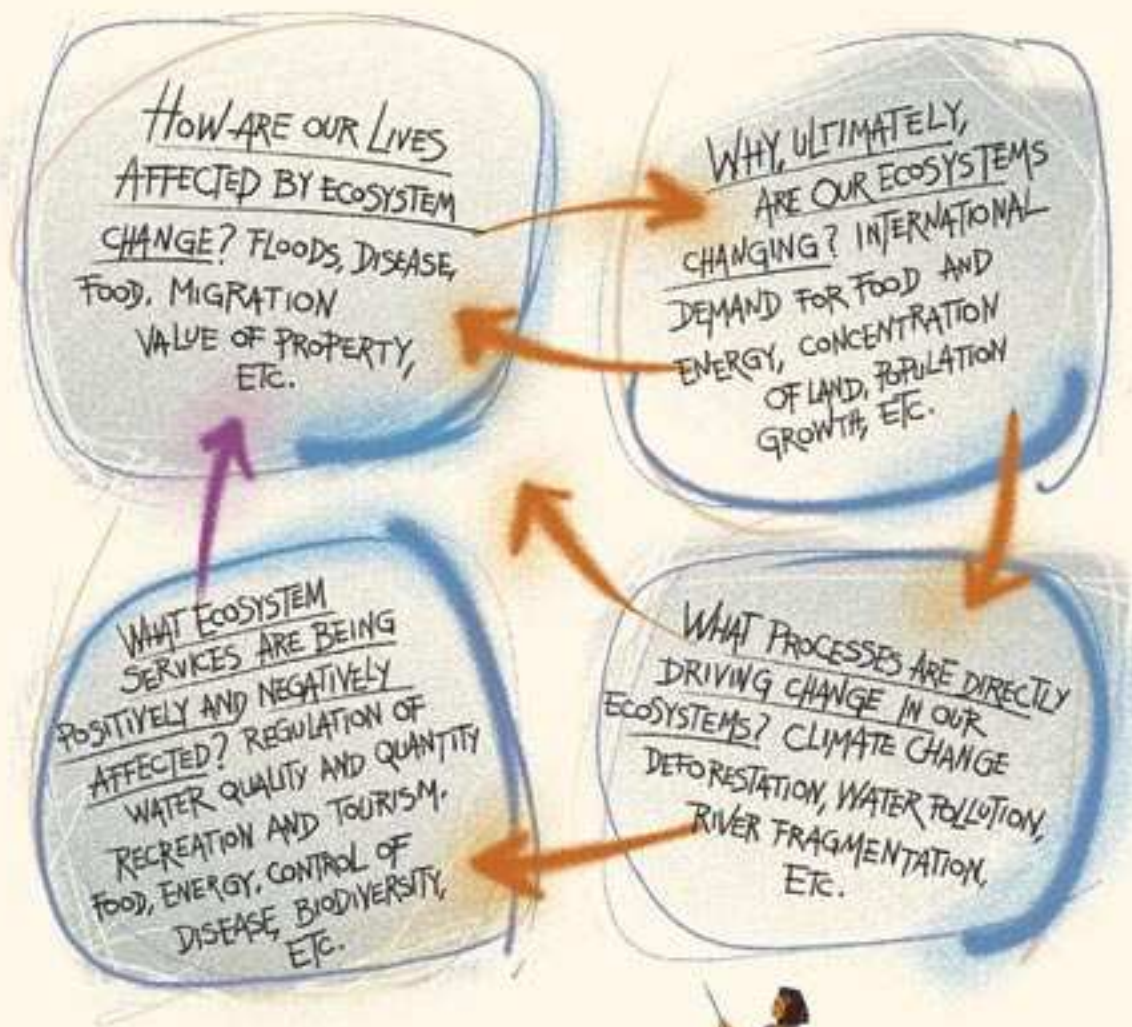 HOW ARE OUR LIVES
AFFECTED BY ECOSYSTEM
CHANGE? FLOODS, DISEASE,
FOOD, MIGRATION
VALUE OF PROPERTY,
ETC.
WHY, ULTIMATELY,
ARE OUR ECOSYSTEMS
CHANGING? INTERNATIONAL
DEMAND FOR FOOD AND
ENERGY, CONCENTRATION
OF LAND, POPULATION
GROWTH, ETC.
WHAT ECOSYSTEM
SERVICES ARE BEING
POSITIVELY AND NEGATIVELY
AFFECTED? REGULATION OF
WATER QUALITY AND QUANTITY
RECREATION AND TOURISM.
FOOD, ENERGY, CONTROL OF
DISEASE, BIODIVERSITY,
ETC.
WHAT PROCESSES ARE DIRECTLY
DRIVING CHANGE IN OUR
ECOSYSTEMS? CLIMATE CHANGE
DEFORESTATION, WATER POLLUTION,
RIVER FRAGMENTATION,
ETC.